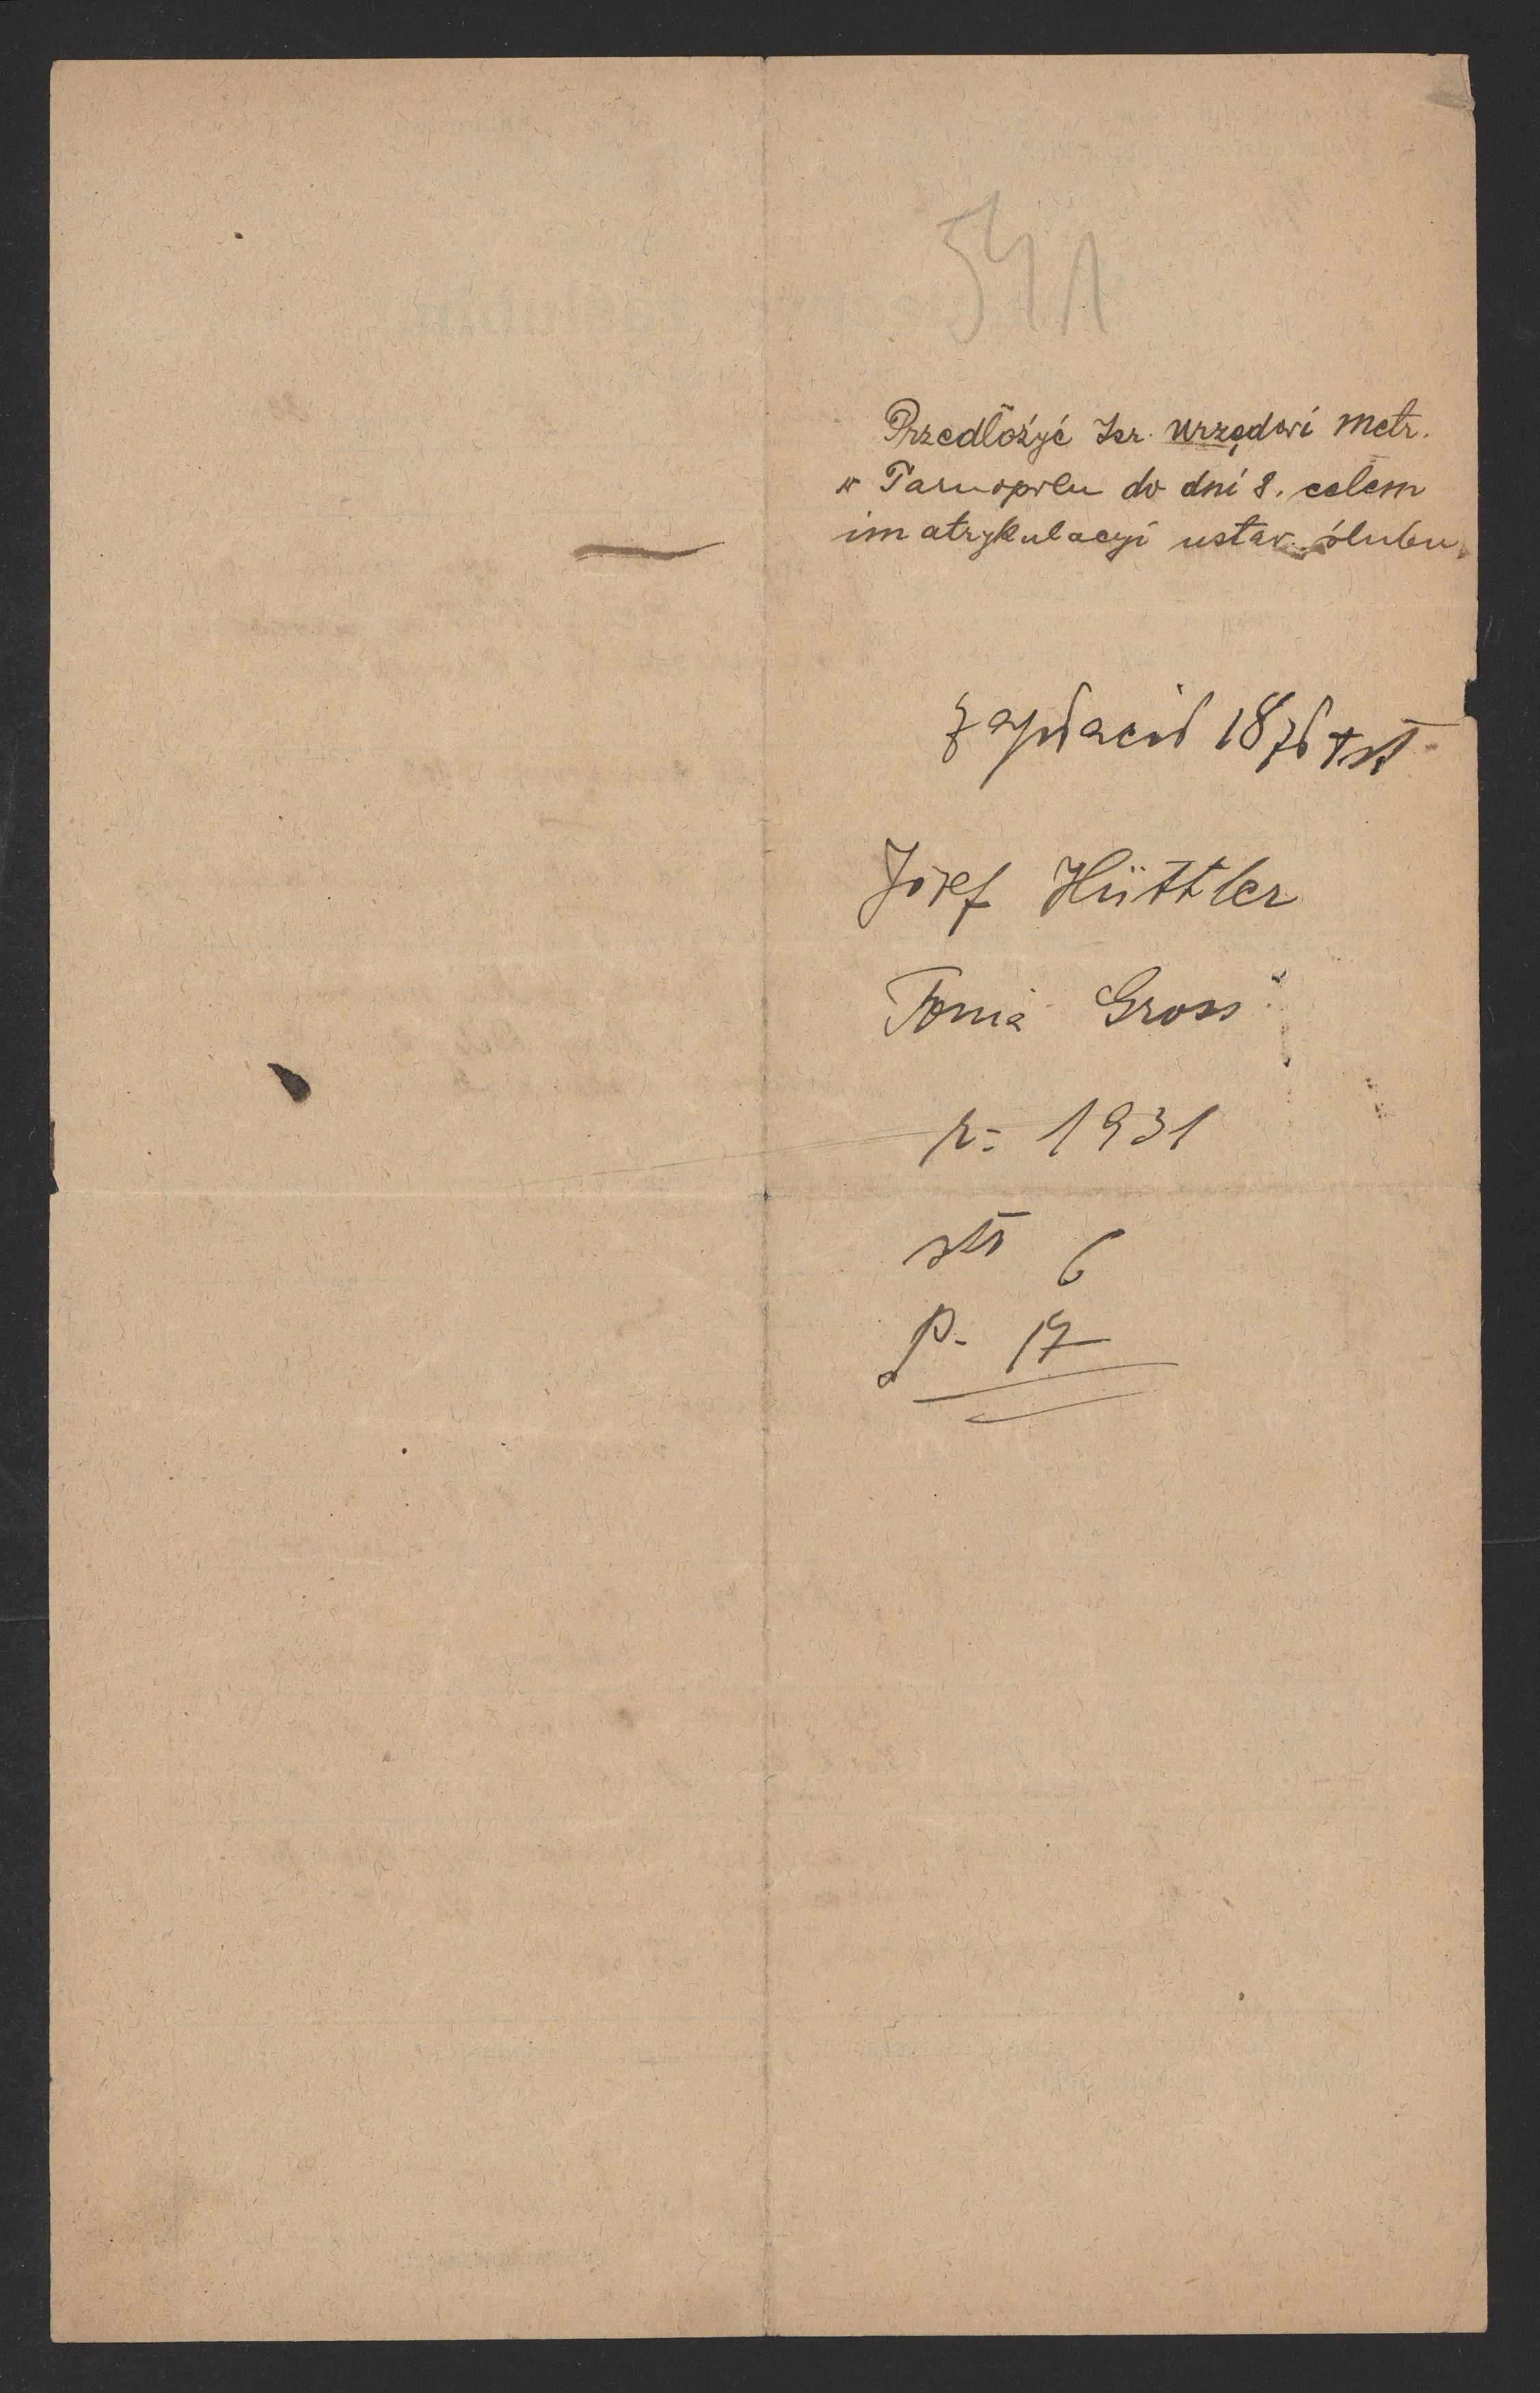 541
Przedłożyć Izr. Urzędowi Metr.
w Tarnopolu do dni 8. celem
imatrykulacyi ustaw. ślubu
zapłacił 18
Józef Hüttler
Tonia Gross
r = 1931
str 6
p. 17